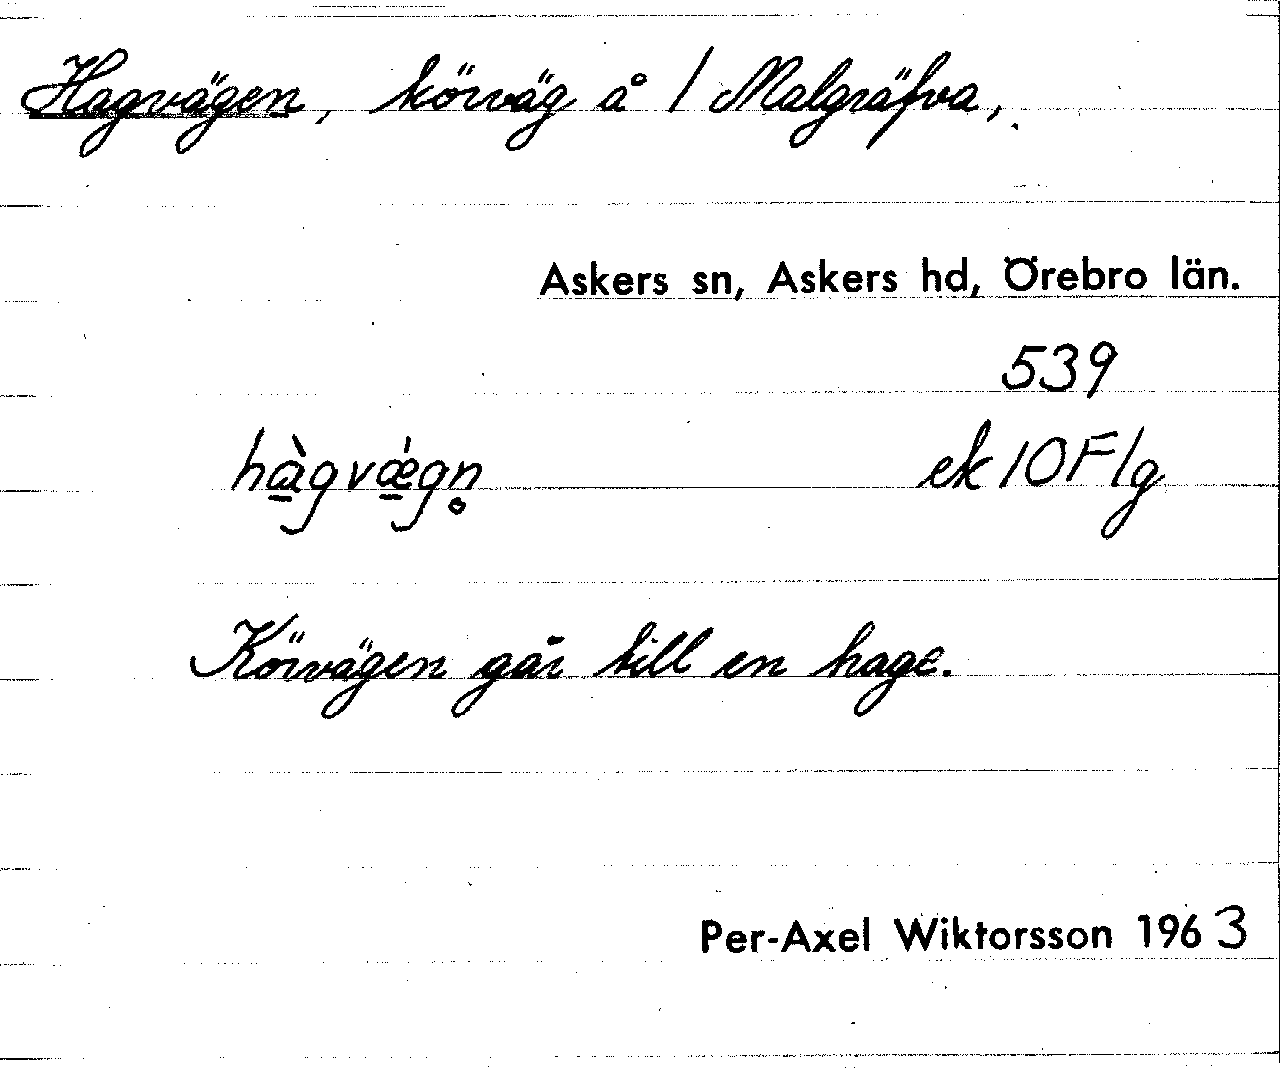 Hagvägen, körväg å 1 Malgräfva,
Askers sn, Askers hd, Örebro län.
539
hà̱gvǽ̱gn̥ ek 10F1g
Körvägen går till en hage.
Per-Axel Wiktorsson 1963